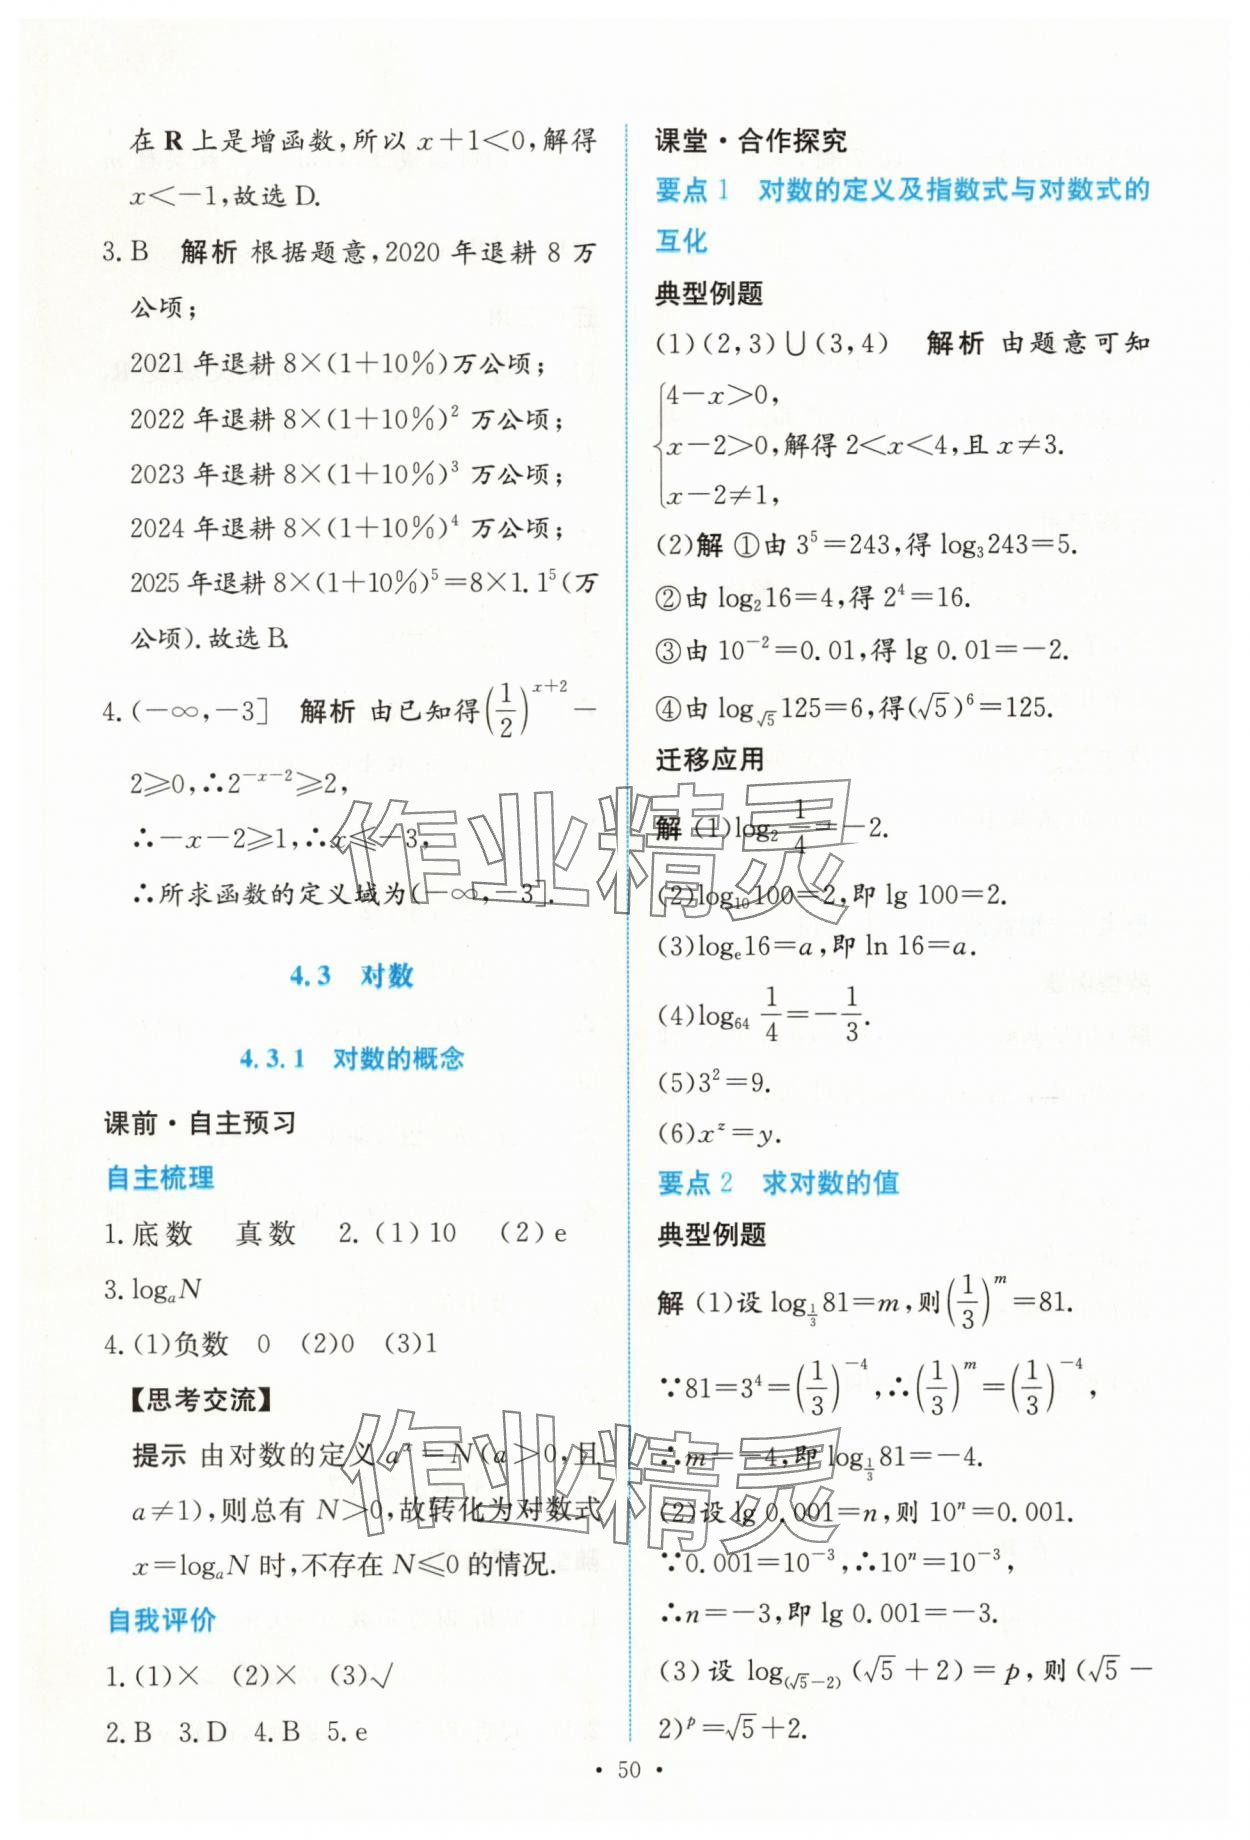 在 R 上是增函数,所以 x+1<0,解得
x<-1,故选 D.
3. B 解析 根据题意,2020 年退耕 8 万
公顷;
2021 年退耕 8×(1+10%)万公顷;
2022 年退耕 8×(1+10%)² 万公顷;
2023 年退耕 8×(1+10%)³ 万公顷;
2024 年退耕 8×(1+10%)⁴ 万公顷;
2025 年退耕 8×(1+10%)⁵=8×1.1⁵(万
公顷).故选 B.
4. (-∞,-3] 解析 由已知得(1/2)^(x+2)-
2≥0,∴2^(-x-2)≥2,
∴-x-2≥1,∴x≤-3,
∴所求函数的定义域为(-∞,-3].
4.3 对数
4.3.1 对数的概念
课前·自主预习
自主梳理
1. 底数 真数 2. (1)10 (2)e
3. logₐN
4. (1)负数 0 (2)0 (3)1
【思考交流】
提示 由对数的定义 aˣ=N(a>0,且
a≠1),则总有 N>0,故转化为对数式
x=logₐN 时,不存在 N≤0 的情况.
自我评价
1. (1)× (2)× (3)√
2. B 3. D 4. B 5. e
课堂·合作探究
要点 1 对数的定义及指数式与对数式的
互化
典型例题
(1)(2,3)∪(3,4) 解析 由题意可知
{4-x>0,
x-2>0,解得 2<x<4,且 x≠3.
x-2≠1,
(2)解 ①由 3⁵=243,得 log₃243=5.
②由 log₂16=4,得 2⁴=16.
③由 10⁻²=0.01,得 lg 0.01=-2.
④由 log_√5 125=6,得(√5)⁶=125.
迁移应用
解 (1)log₂ 1/4=-2.
(2)log₁₀100=2,即 lg 100=2.
(3)logₑ16=a,即 ln 16=a.
(4)log₆₄ 1/4=-1/3.
(5)3²=9.
(6)x^z=y.
要点 2 求对数的值
典型例题
解 (1)设 log_(1/3) 81=m,则(1/3)^m=81.
∵81=3⁴=(1/3)⁻⁴,∴(1/3)^m=(1/3)⁻⁴,
∴m=-4,即 log_(1/3) 81=-4.
(2)设 lg 0.001=n,则 10ⁿ=0.001.
∵0.001=10⁻³,∴10ⁿ=10⁻³,
∴n=-3,即 lg 0.001=-3.
(3)设 log_(√5-2) (√5+2)=p,则(√5-
2)^p=√5+2.
• 50 •
作业精灵
作业精灵